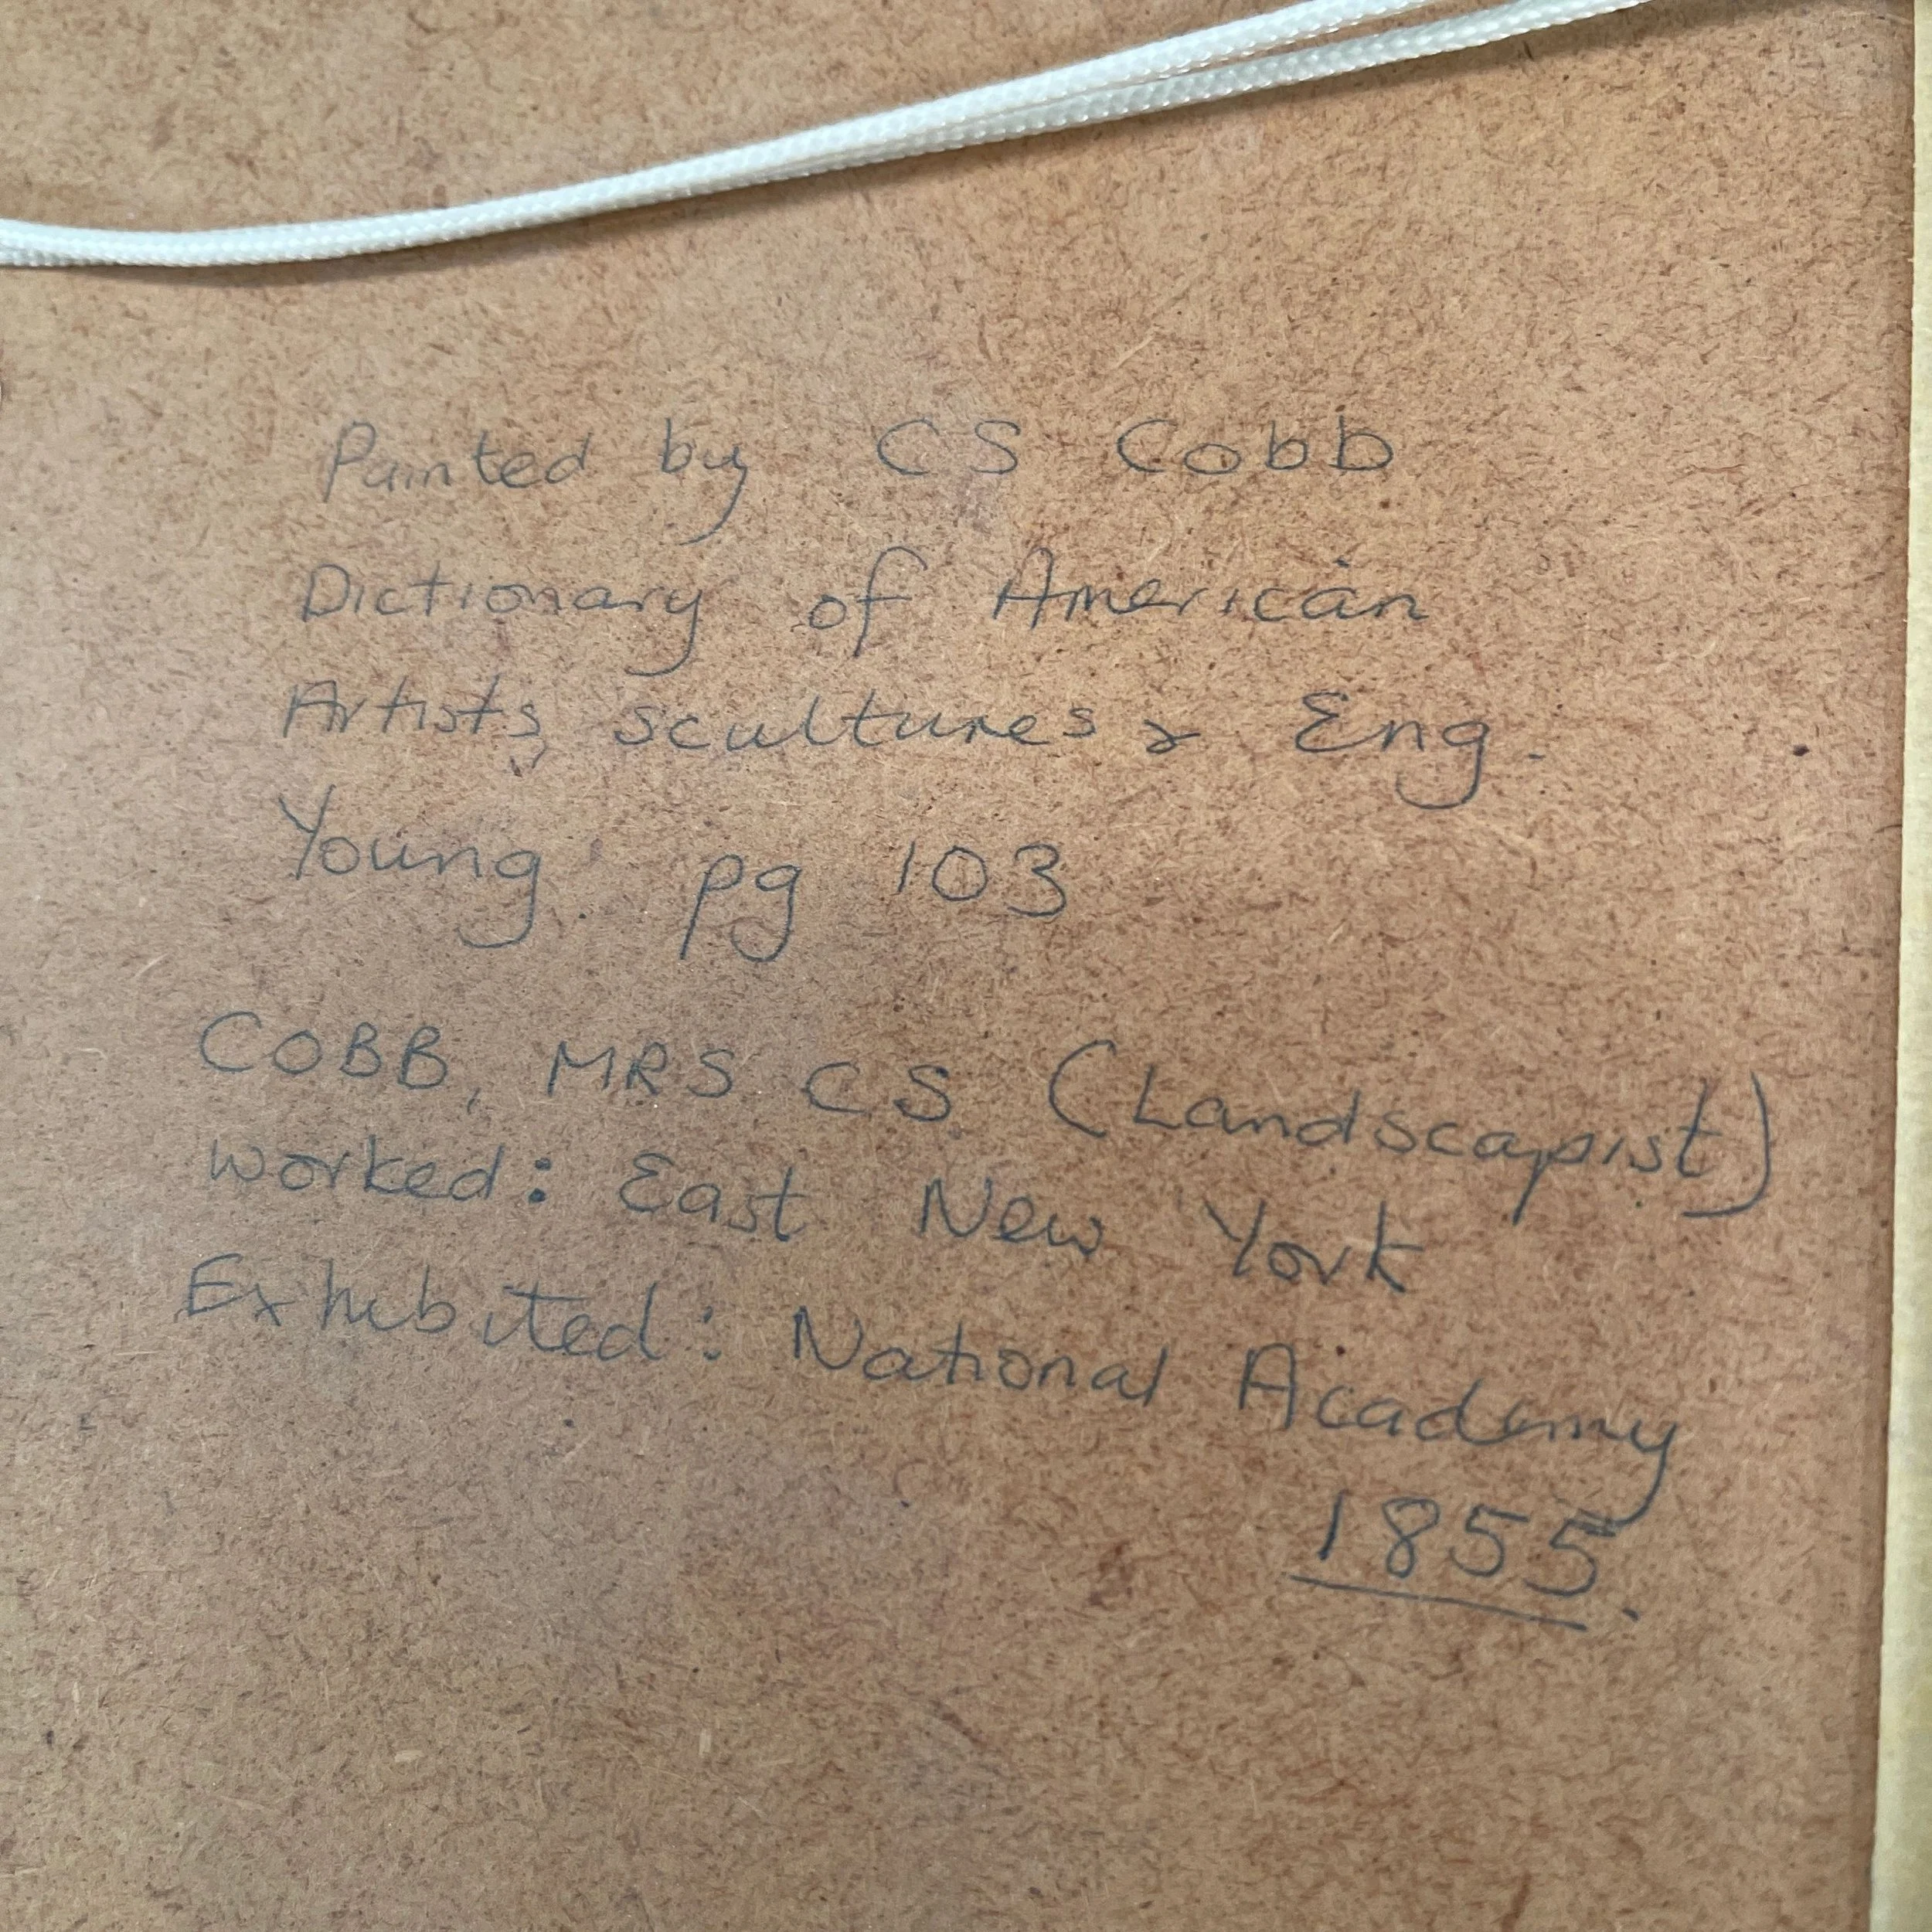 Painted by CS Cobb
Dictionary of American
Artists, scultures & Eng.
Young. pg 103
COBB, MRS CS. (Landscapist)
worked: East New York
Exhibited: National Academy
1855.